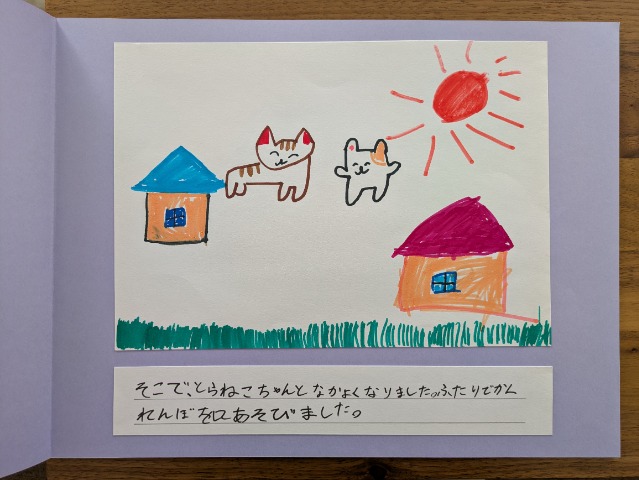 そこで、とらねこちゃんとなかよくなりました。ふたりでかく
れんぼをしてあそびました。